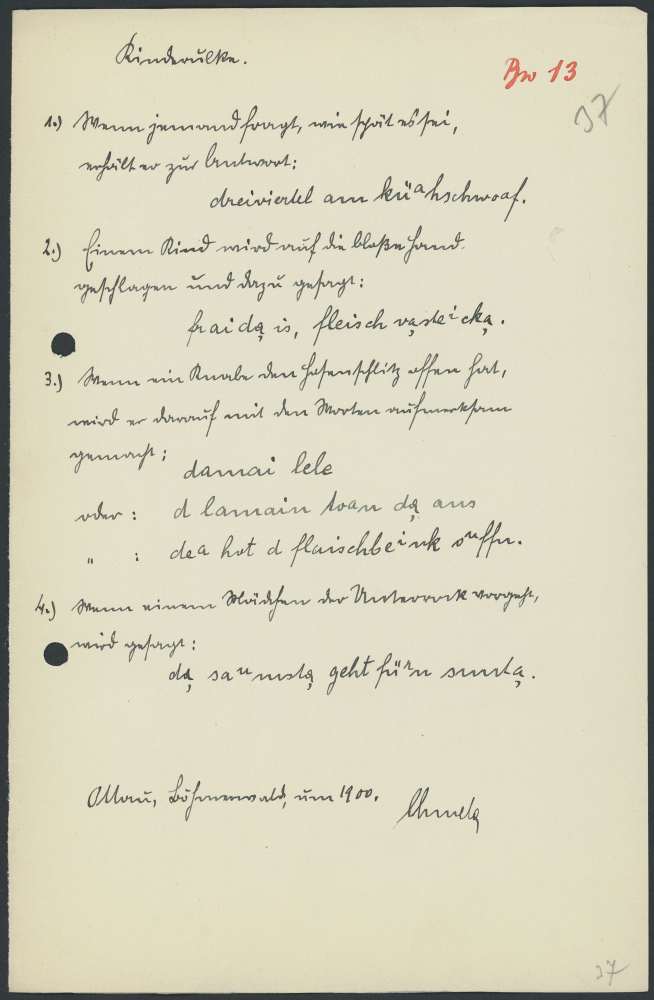 Kinderulke.
Bw 13
37
1.) Wenn jemand fragt, wie spät es sei,
erhält er zur Antwort:
dreiviertel am küᵃhschwoaf.
2.) Einem Kind wird auf die bloße Hand
geschlagen und dazu gesagt:
fraidą is, fleisch vąsteⁱcką.
3.) Wenn ein Knabe den Hosenschlitz offen hat,
wird er darauf mit den Worten aufmerksam
gemacht:
damai lele
oder : d lamain toan dą aus
" : deᵃ hot d flaischbeⁱnk oᵘffn.
4.) Wenn einem Mädchen der Unterrock vorgeht,
wird gesagt:
dą saᵘmstą geht füⁿn sunntą.
Ottau, Böhmerwald, um 1900.
37